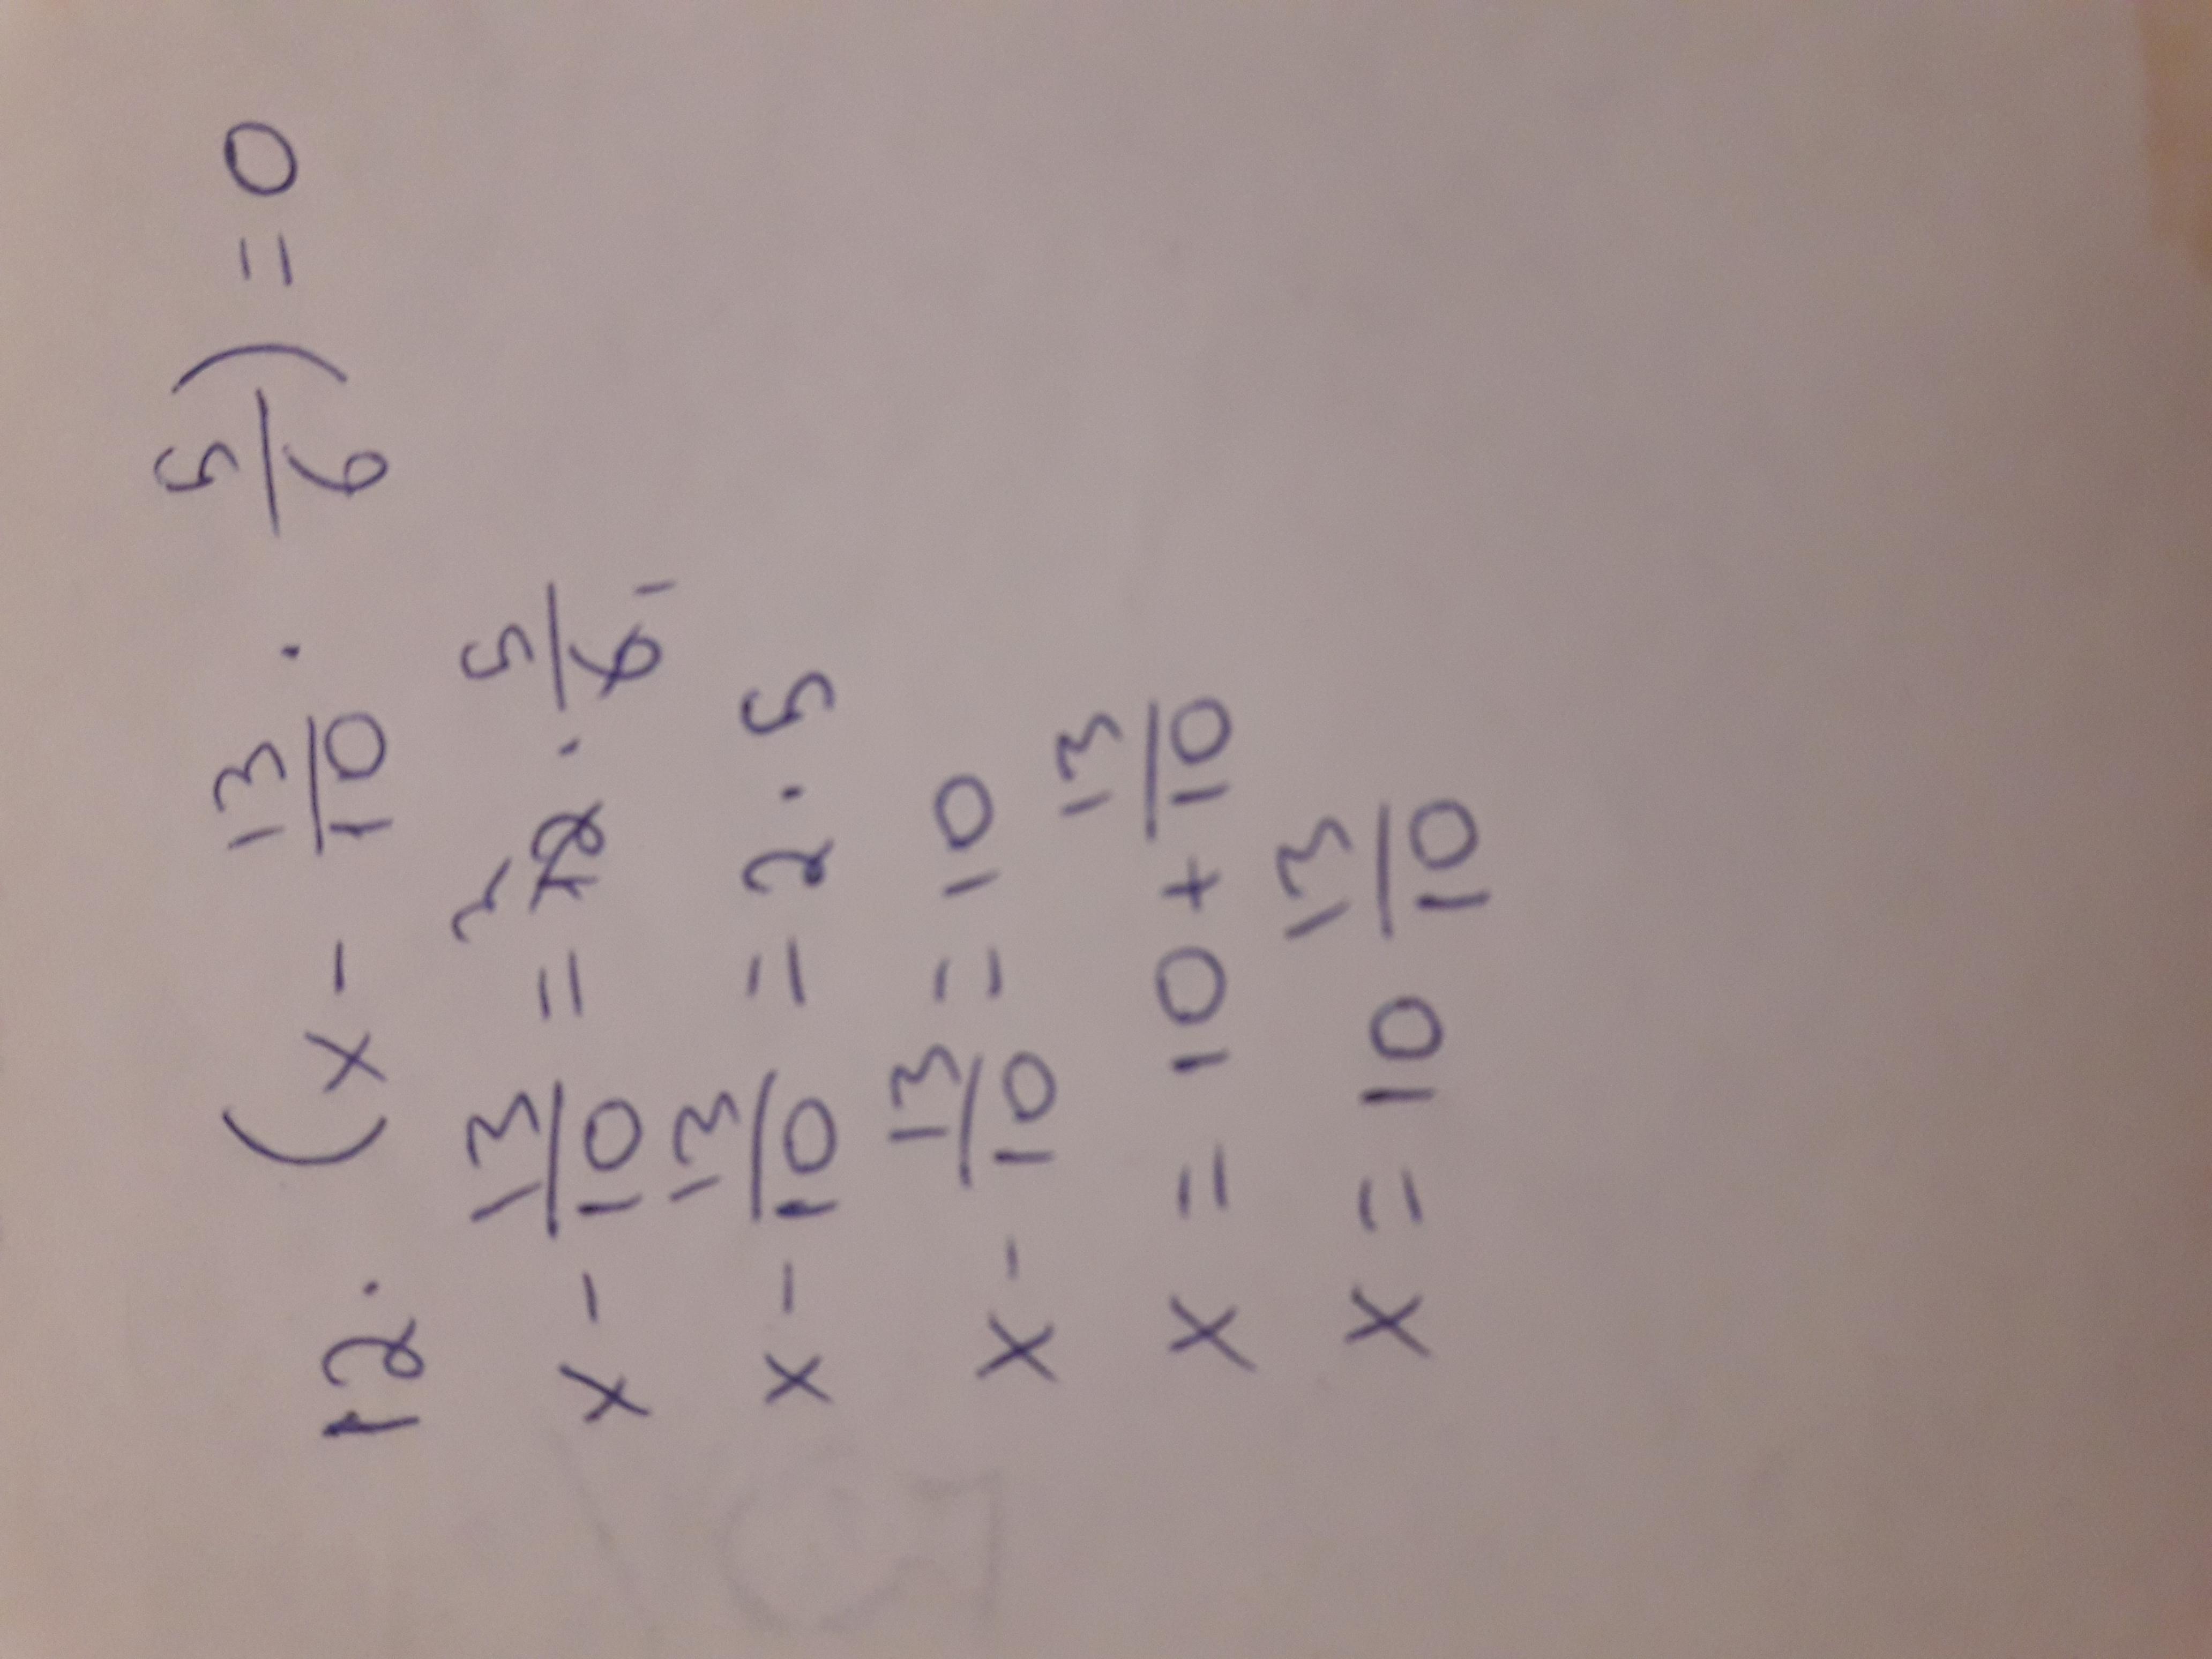 12 · (x - 13/10 · 5/6) = 0
x - 13/10 = 12 2 · 5/6 1
x - 13/10 = 2 · 5
x - 13/10 = 10
x = 10 + 13/10
x = 10 13/10